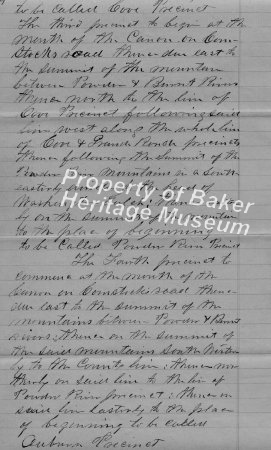 to be called Cove Precinct
The third precinct to begin at the
mouth of the Canon on Com-
Stocks road thence due east to
the Summit of the mountain
between Powder & Burnt River
thence north to the line of
Cove Precinct following said
line west along the whole line
of Cove & Grande Ronde precincts
thence following the Summit of the
Powder River Mountains in a South
easterly
on the Summit
to the place of beginning
to be called Powder River Precinct
The Fourth precinct to
commence at the mouth of the
Canon on Comstocks road thence
due east to the summit of the
mountains between Powder & Burnt
rivers; thence on the summit of
the said mountains South Westerly
to the County line; thence nor
therly on said line to the line of
Powder River precinct; thence on
said line Easterly to the place
of beginning to be called
Auburn Precinct
Property of Baker
Heritage Museum